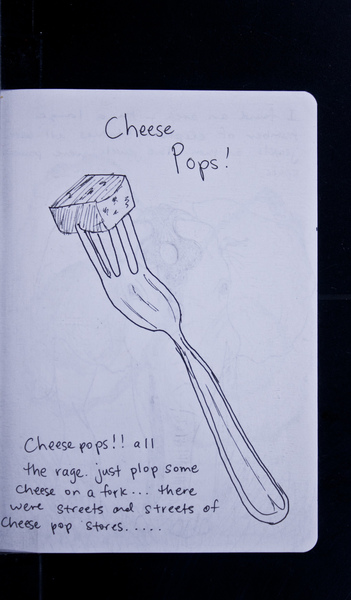 Cheese
Pops!
Cheese pops!! all
the rage. just plop some
cheese on a fork... there
were streets and streets of
cheese pop stores.....